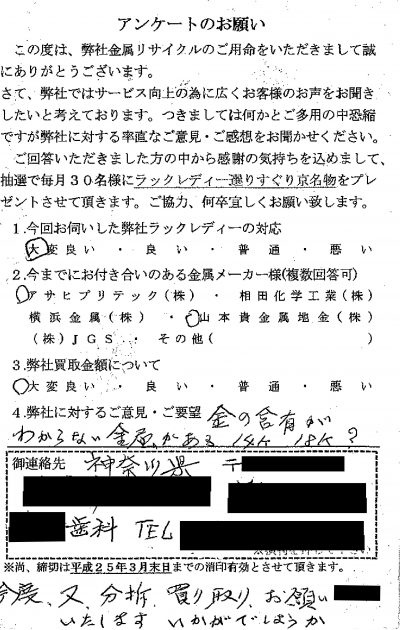 アンケートのお願い
この度は、弊社金属リサイクルのご用命をいただきまして誠
にありがとうございます。
さて、弊社ではサービス向上の為に広くお客様のお声をお聞き
したいと考えております。つきましては何かとご多用の中恐縮
ですが弊社に対する率直なご意見・ご感想をお聞かせください。
ご回答いただきました方の中から感謝の気持ちを込めまして、
抽選で毎月30名様にラックレディー選りすぐり京名物をプレ
ゼントさせて頂きます。ご協力、何卒宜しくお願い致します。
1.今回お伺いした弊社ラックレディーの対応
大変良い・良い・普通・悪い
2.今までにお付き合いのある金属メーカー様(複数回答可)
アサヒプリテック(株)・相田化学工業(株)
横浜金属(株)・山本貴金属地金(株)
(株)JGS・その他( )
3.弊社買取金額について
大変良い・良い・普通・悪い
4.弊社に対するご意見・ご要望 金の含有が
わからない金属がある 14K 18K?
御連絡先 神奈川県 〒
歯科 TEL
※尚、締切は平成25年3月末日までの消印有効とさせて頂きます。
今度、又、分析、買り取り、お願い
いたします いかがでしょうか